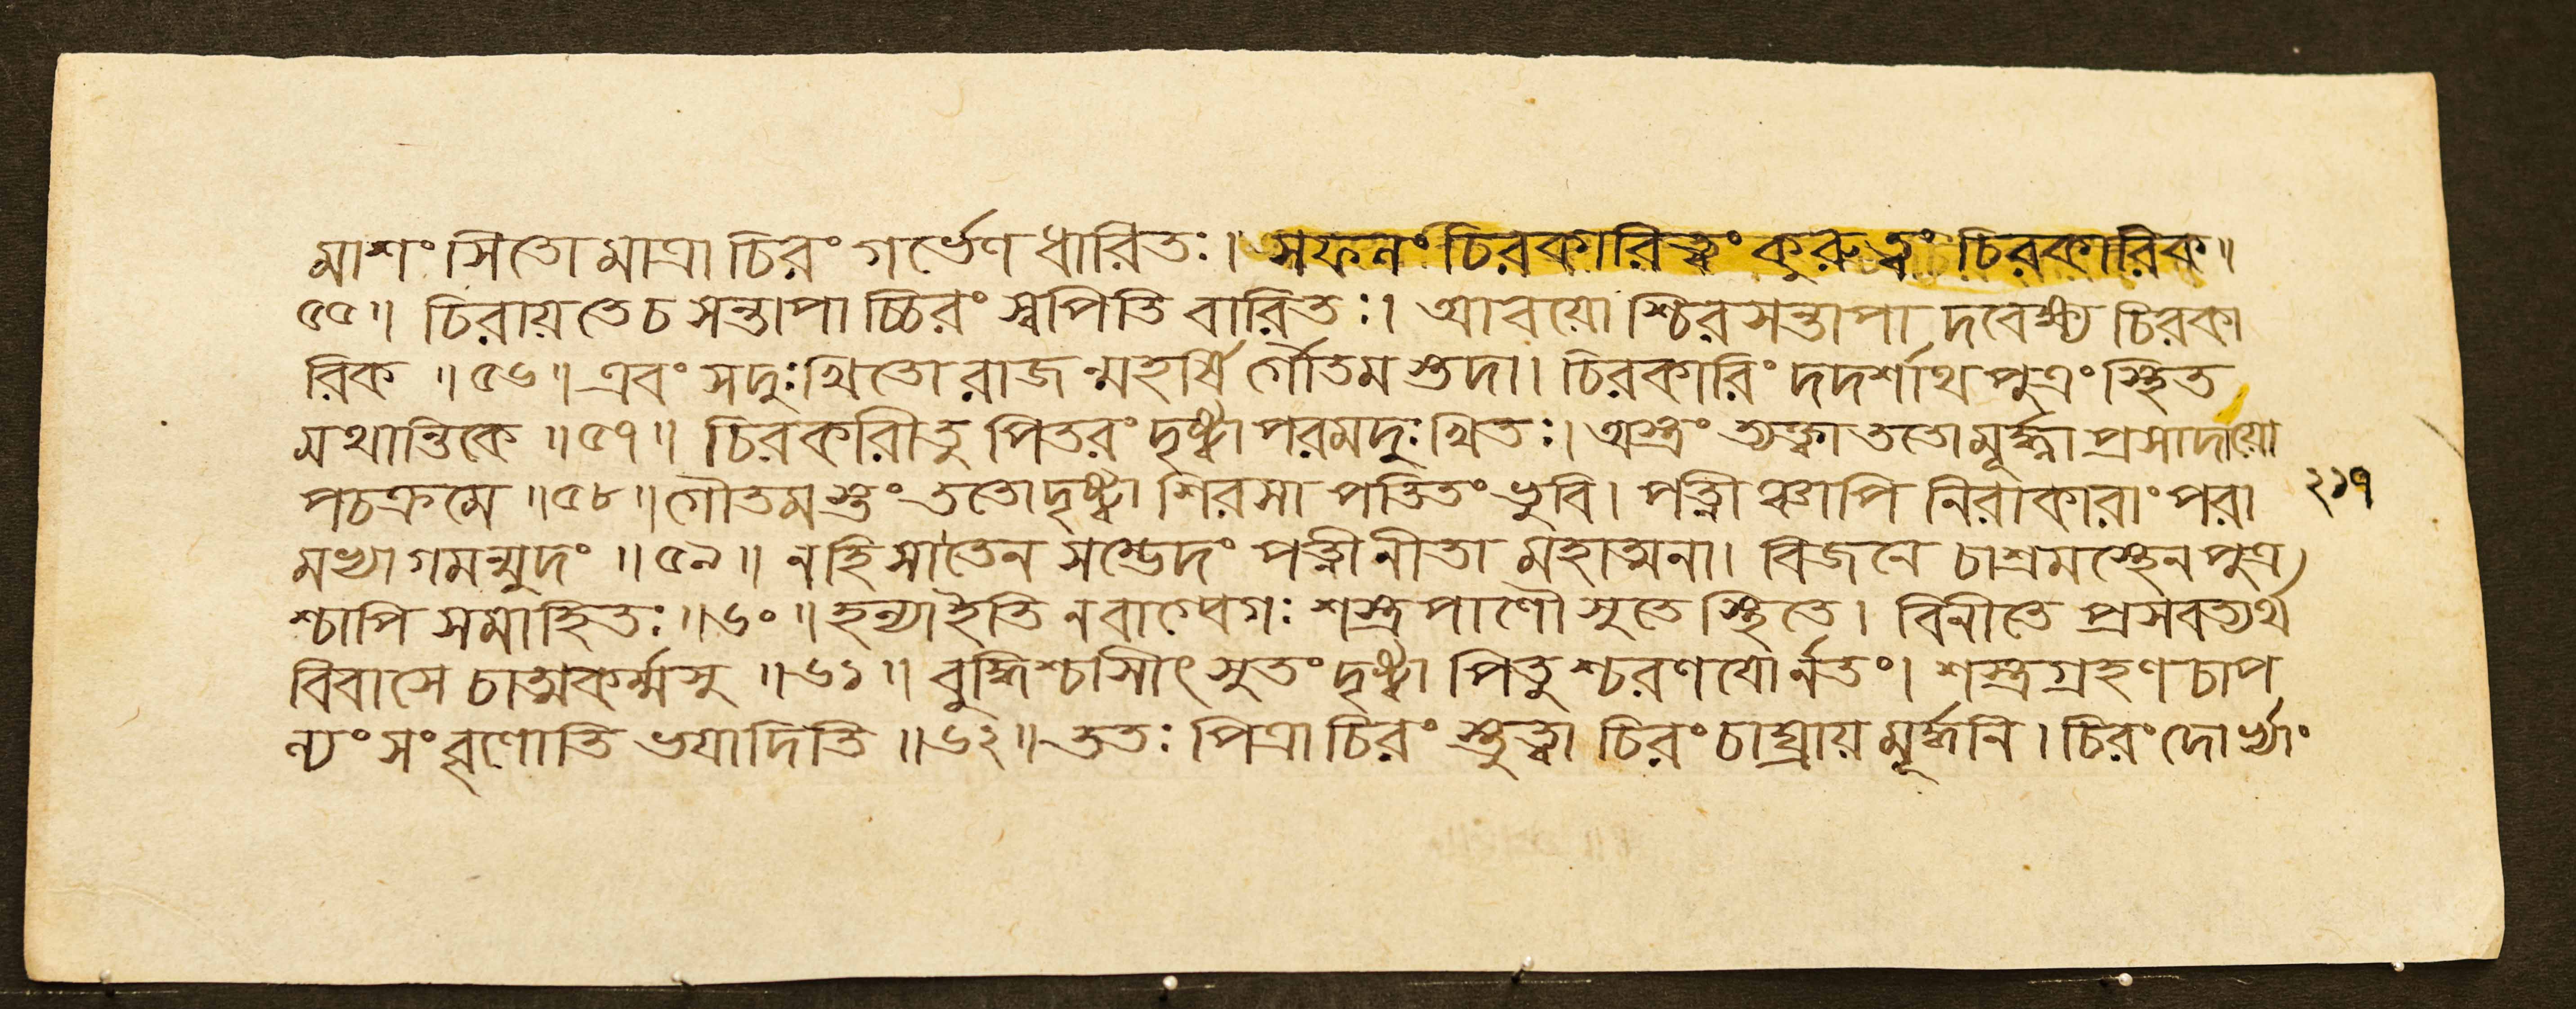 মাশংসিতো মাত্রা চিরং গর্ভেণ ধারিতঃ। সফলং চিরকারিত্বং কুরুত্বং চিরকারিক॥
৫৫॥ চিরায়তে চ সন্তাপাচ্চিরং স্বপিতি বারিতঃ। আবয়োশ্চিরসন্তাপাদবেক্ষ্য চিরকা
রিক ॥৫৬॥ এবং সদুঃখিতো রাজন্মহর্ষির্গৌতমস্তদা। চিরকারিং দদর্শাথ পুত্রং স্থিত
মথান্তিকে ॥৫৭॥ চিরকারী তু পিতরং দৃষ্ট্বা পরমদুঃখিতঃ। শস্ত্রং ত্যক্ত্বা ততো মূর্দ্ধ্না প্রসাদায়ো
পচক্রমে ॥৫৮॥ গৌতমস্তং ততো দৃষ্ট্বা শিরসা পতিতং ভুবি। পত্নীঞ্চাপি নিরাকারাং পরা
মভ্যাগমন্মুদং ॥৫৯॥ নহি সা তেন সম্ভেদং পত্নী নীতা মহাত্মনা। বিজনে চাশ্রমস্থেন পুত্র
শ্চাপি সমাহিতঃ ॥৬০॥ হন্যাইতি শস্ত্রপাণৌ সুতে স্থিতে। বিনীতে প্রসবত্যর্থ
বিবাসে চাত্মকর্ম্মসু ॥৬১॥ বুদ্ধিশ্চাসীৎ সুতং দৃষ্ট্বা পিতুশ্চরণযোর্নতং। শস্ত্রগ্রহণচাপ
ল্যং সংবৃণোতি ভযাদিতি ॥৬২॥ ততঃ পিত্রা চিরং স্তুত্বা চিরং চাঘ্রায় মূর্দ্ধনি। চিরং দোর্ভ্যাং
২১৭